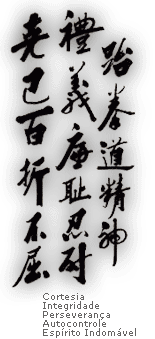 跆拳道精神
禮義廉耻忍耐
克己百折不屈
Cortesia
Integridade
Perseverança
Autocontrole
Espírito Indomável